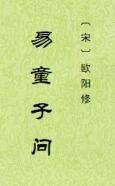 〔宋〕欧阳修
易童子问